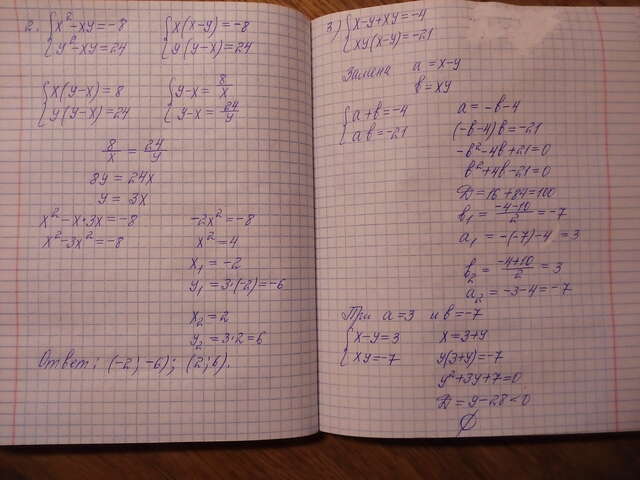 2. { x² - xy = -8     { x(x-y) = -8
{ y² - xy = 24     { y(y-x) = 24
{ x(y-x) = 8     { y-x = 8/x
{ y(y-x) = 24     { y-x = 24/y
8/x = 24/y
8y = 24x
y = 3x
x² - x·3x = -8     -2x² = -8
x² - 3x² = -8     x² = 4
x₁ = -2
y₁ = 3·(-2) = -6
x₂ = 2
y₂ = 3·2 = 6
Ответ: (-2; -6); (2; 6).
3) { x-y+xy = -4
{ xy(x-y) = -21
Замена a = x-y
b = xy
{ a+b = -4     a = -b-4
{ ab = -21     (-b-4)b = -21
-b²-4b+21 = 0
b²+4b-21 = 0
D = 16+84 = 100
b₁ = (-4-10)/2 = -7
a₁ = -(-7)-4 = 3
b₂ = (-4+10)/2 = 3
a₂ = -3-4 = -7
При a = 3 и b = -7
{ x-y = 3     x = 3+y
{ xy = -7     y(3+y) = -7
y²+3y+7 = 0
D = 9-28 < 0
∅